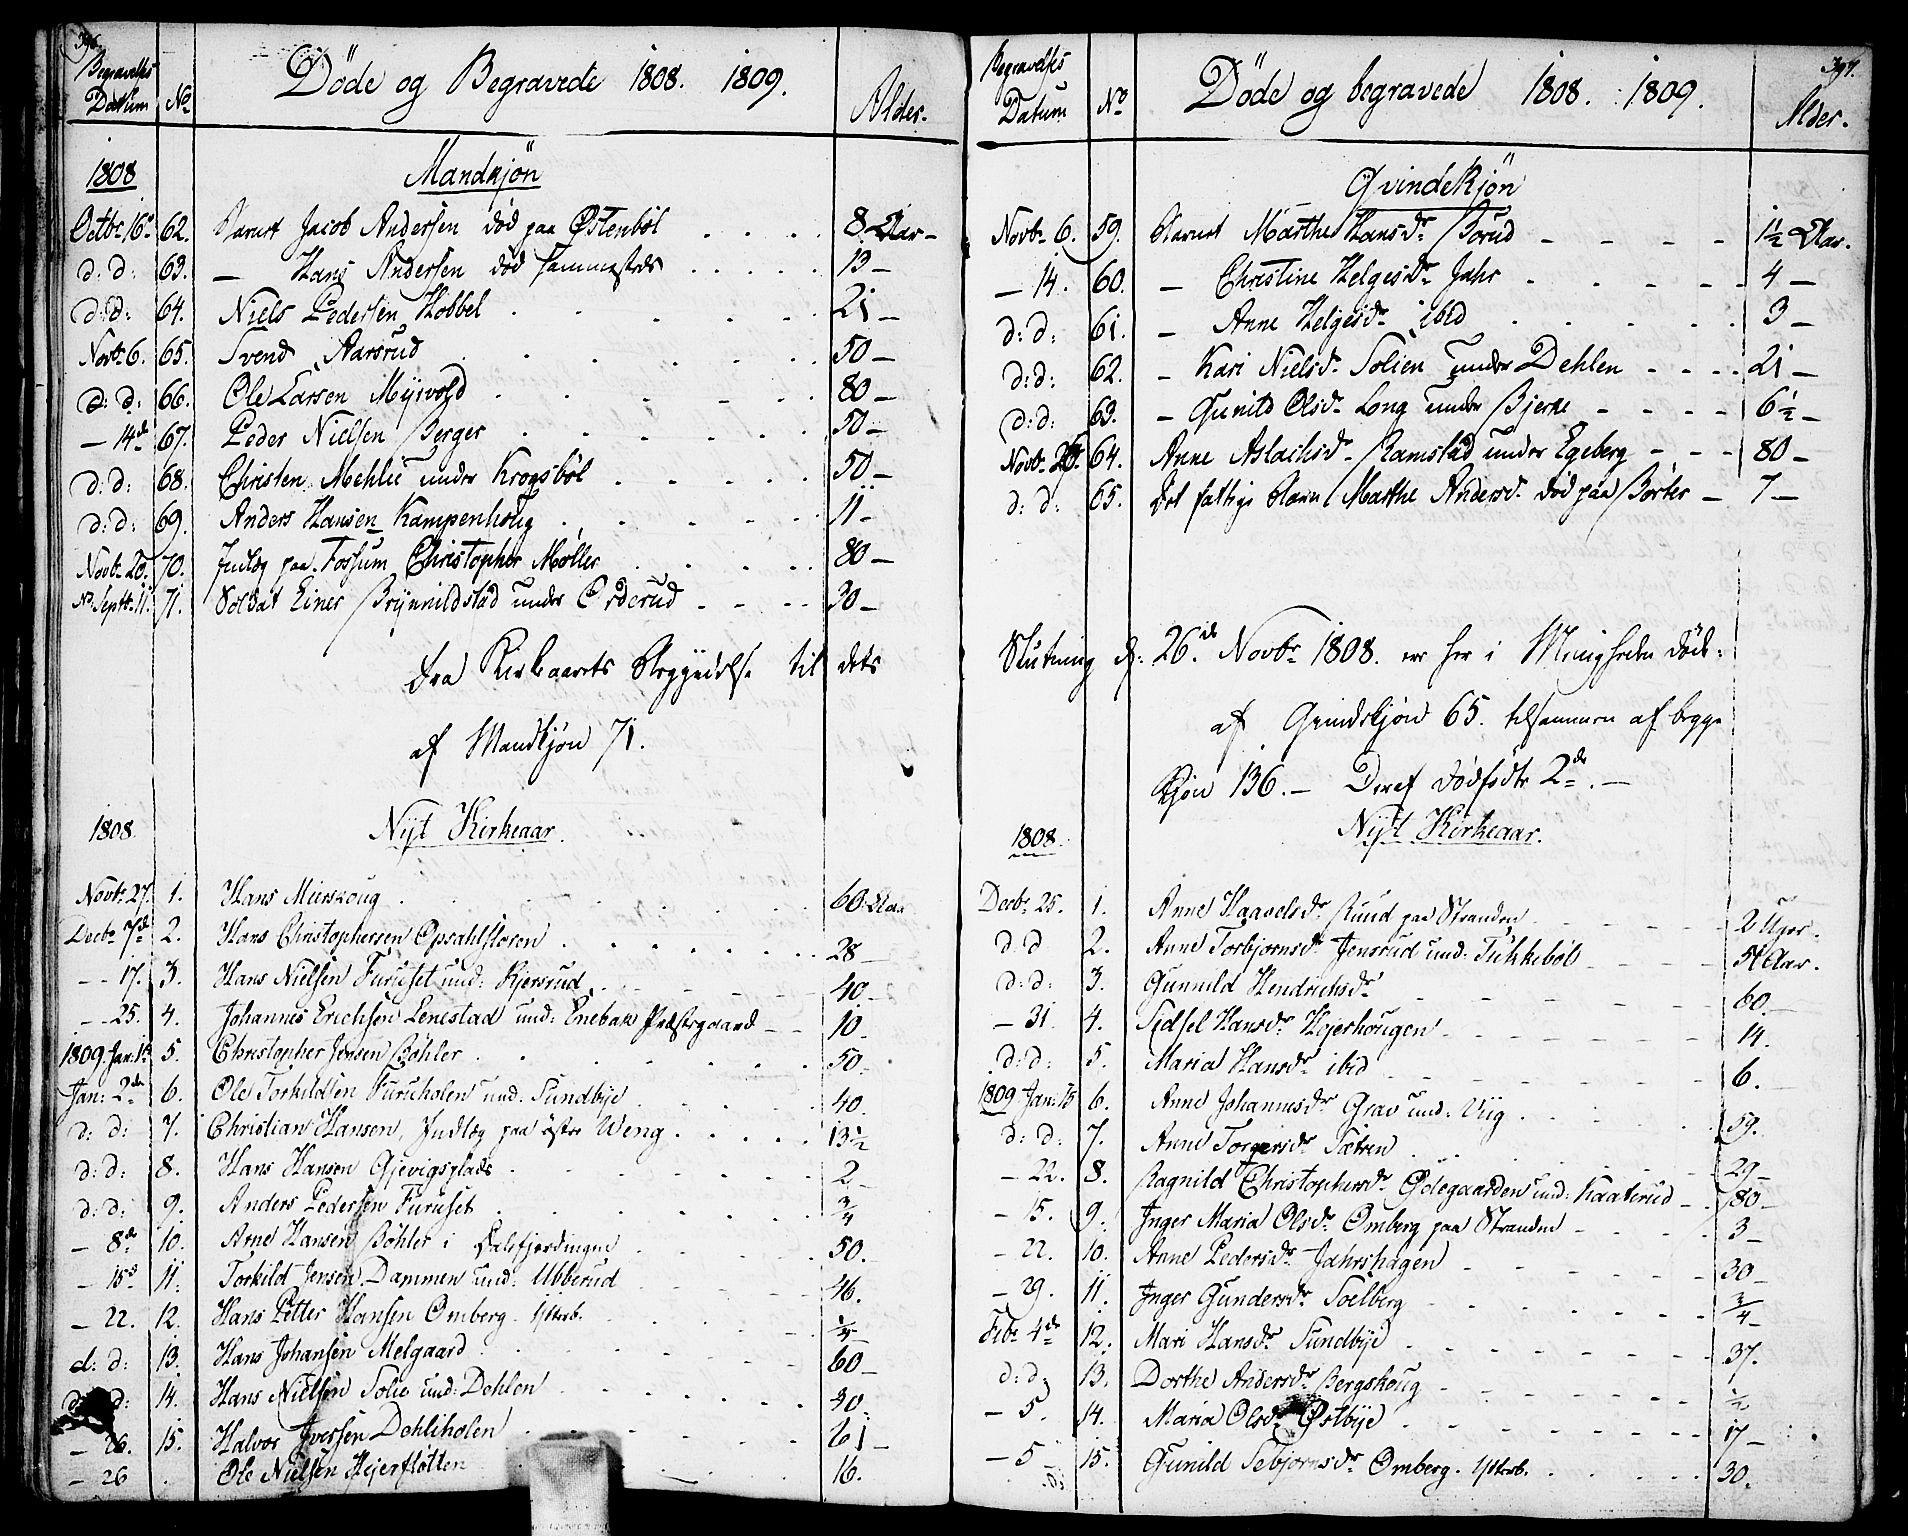 396.
Begravelses Datum No Døde og Begravede 1808. 1809. Alder.
1808 Mandkjön
Octbr 16de 62. Barnet Jacob Andersen död paa Østenböl 8 Aar
d: d: 63. — Hans Andersen död sammesteds 13 —
d: d: 64. Niels Pedersen Kobbel 21 —
Novbr 6. 65. Svend Aarsrud 50 —
d: d: 66. Ole Larsen Myrvold 80 —
— 14de 67. Peder Nielsen Berger 50 —
d: d: 68. Christen Mehlie under Krogsböl 50 —
d: d: 69. Anders Hansen Kampenhoug 11 —
Novbr 20. 70. Indlæg paa Fossum Christopher Møller 80 —
NB Septr. 11. 71. Soldat Einer Brynnildstad under Orderud 30 —
Fra Kirkeaarets Begyndelse til dets
af Mandkjön 71.
1808 Nyt Kirkeaar.
Novbr 27. 1. Hans Mierskoug 60 Aar
Decbr 7de 2. Hans Christophersen Opsahlfloren 28 —
— 17. 3. Hans Nielsen Furuset und: Kjersrud 40 —
— 25. 4. Johannes Erichsen Lenestad und: Enebak Præstegaard 10
1809. Jan: 1ste 5. Christopher Jensen Bøhler 50
Jan: 2de 6. Ole Torkildsen Furuholen und: Sundbye 40
d: d: 7. Christian Hansen, Indlæg paa östre Weng 13½
d: d: 8. Hans Hansen Gjevigsplads 2 —
d: d: 9. Anders Pedersen Furuset ¾
— 8de 10. Arne Hansen Bøhler i Dalefjerdingen 50.
— 15de 11. Torkild Jensen Dammen und: Ubberud 46.
— 22. 12. Hans Petter Hansen Omberg
d: d: 13. Hans Johansen Melgaard 60 —
d: d: 14. Hans Nielsen Solie und: Dehlen
— 26. 15. Halvor Iversen Dehliholen 61 —
— 26 Ole Nielsen Hejerflötten 16.
397.
Begravelses Datum No Døde og begravede 1808. 1809. Alder.
Qvindekjön
Novbr 6. 59. Barnet Marthe Hansdr Borud 1½ Aar.
— 14. 60. — Christine Helgesdr Jahr 4 —
d: d: 61. — Anne Helgesdr ibid 3 —
d: d: 62. — Kari Nielsdr Solien under Dehlen 21 —
d: d: 63. — Gunild Olsdr Long under Bjerke 6½ —
Novbr 20. 64. Anne Aslachsdr Ramstad under Egeberg 80 —
d: d: 65. Det fattige Barn Marthe Andersdr död paa Børter — 7 —
Slutning d: 26de Novbr 1808. er her i Menigheden døde
af Qvindekjön 65. tilsammen af begge
Kjön 136. — Deraf dödfödte 2de. —
1808. Nyt Kirkeaar.
Decbr 25. 1. Anne Haavelsdr Ruud paa Stranden 2 Uger.
d: d 2. Anne Torbjornsdr Jensrud und: Tukkeböl 54 Aar.
d: d: 3. Gunnild Hendrichsdr 60.
— 31 4. Sidsel Hansdr Hejerhougen 14.
d: d: 5. Maria Hansdr ibid 6.
1809 Jan: 15 6. Anne Johannesdr Grav und: Viig 59.
d: d: 7. Anne Torgersdr Sætren 29 —
— 22. 8. Ragnild Christophersdr Ødegaarden und: Kaaterud 80 —
— 15. 9. Inger Maria Olsdr Omberg paa Stranden 3 —
— 22. 10. Anne Pedersdr Jahrshagen 30 —
— 29. 11. Inger Gundersdr Soelberg ¾ —
Febr 4de 12. Mari Hansdr Sundbye 37.
d: d: 13. Dorthe Andersdr Bergskoug ½
— 5. 14. Maria Olsdr Østbye 17 —
— 5 15. Gunild Sebjornsdr Omberg. 30.